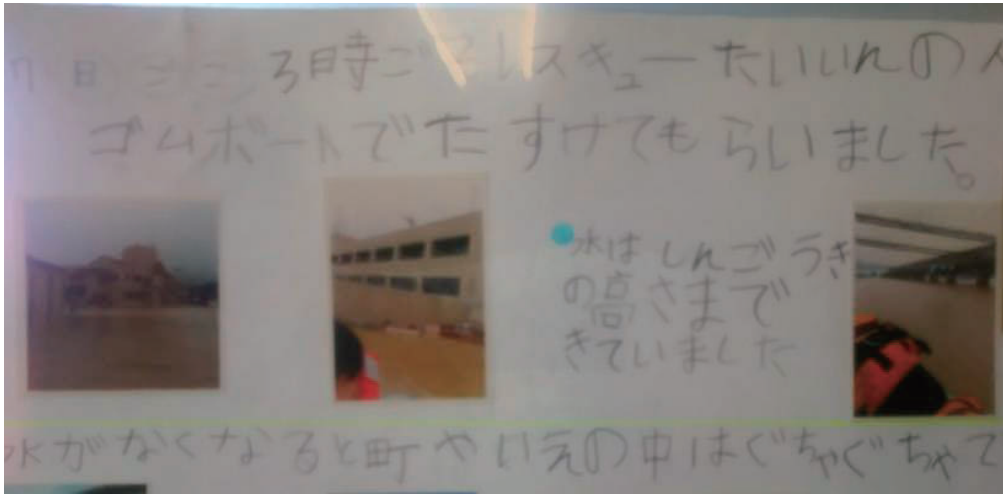 7日ごご3時ごろレスキューたいいんの人
ゴムボートでたすけてもらいました。
水はしんごうき
の高さまで
きていました
水がなくなると町やいえの中はぐちゃぐちゃで